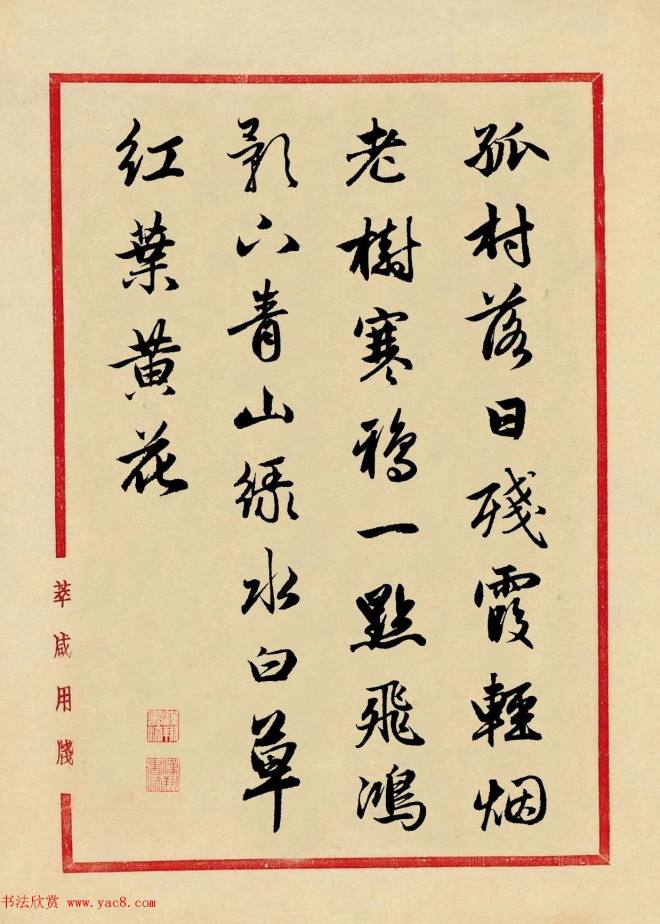 孤村落日殘霞輕烟
老樹寒鴉一點飛鴻
影下青山綠水白草
紅葉黃花
用牋
书法欣赏 www.yac8.com